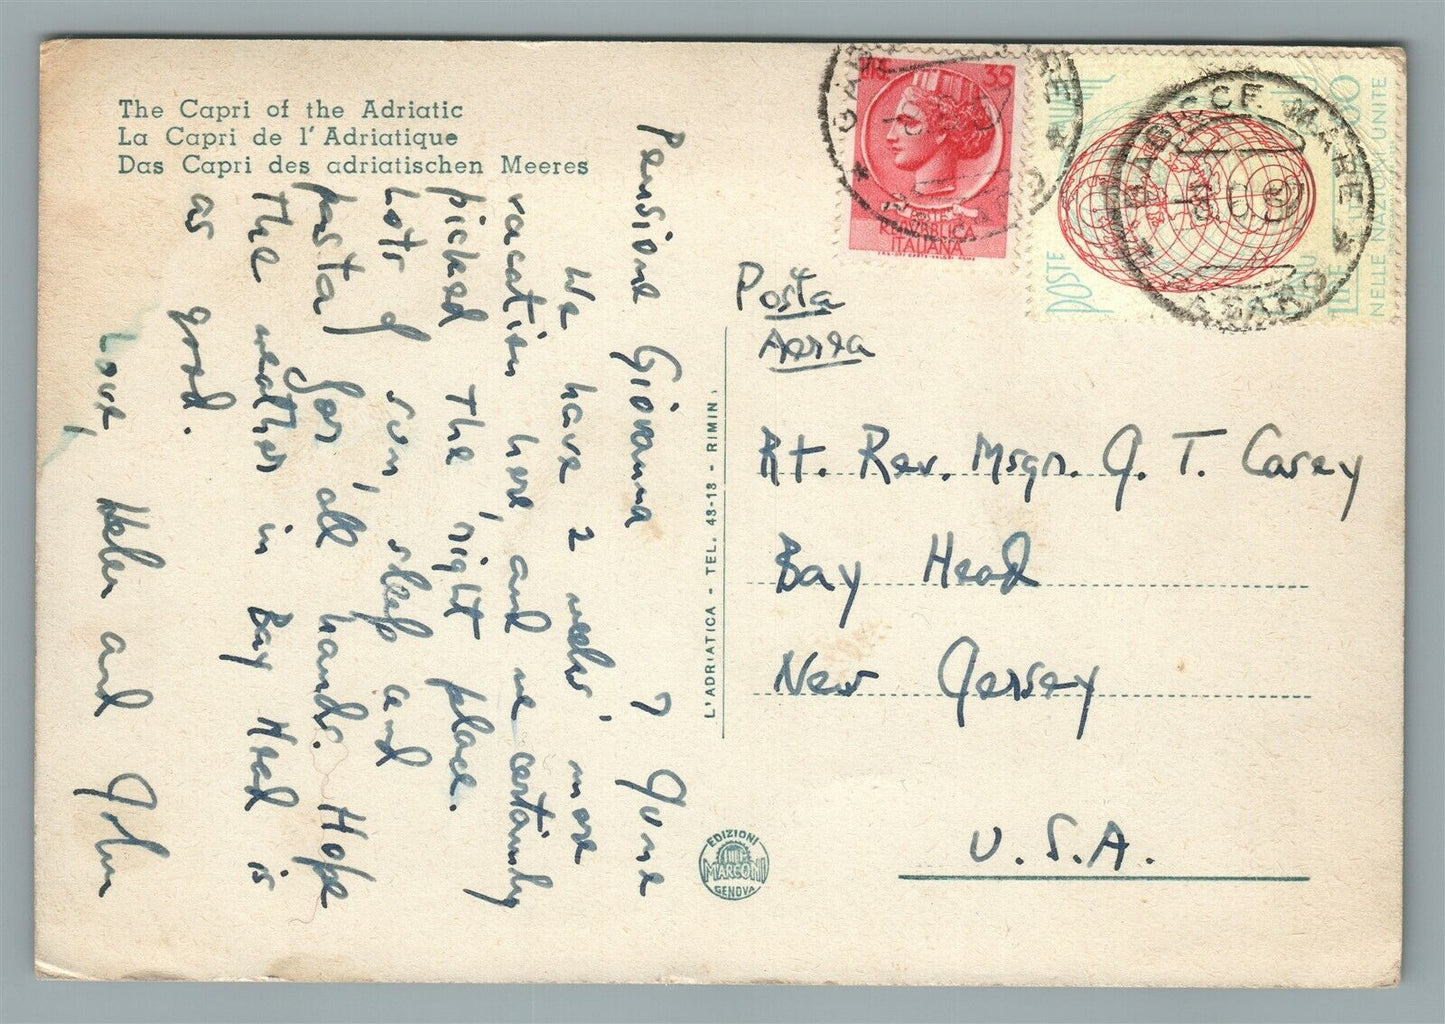 The Capri of the Adriatic
La Capri de l'Adriatique
Das Capri des adriatischen Meeres
Pensione Giovanna 7 June
We have 2 weeks' more
vacation here, and we certainly
picked the right place.
Lots of sun, sleep and
pasta for all hands. Hope
the weather in Bay Head is
as good.
Love, Helen and John
L'ADRIATICA - TEL. 43-18 - RIMINI
EDIZIONI
MARCONI
GENOVA
35
POSTE
REPUBBLICA
ITALIANA
POSTE
ITALIANE
LIRE
NELLE NAZIONI UNITE
GABICCE MARE
PESARO
Posta
Aerea
Rt. Rev. Msgn. J. T. Casey
Bay Head
New Jersey
U.S.A.